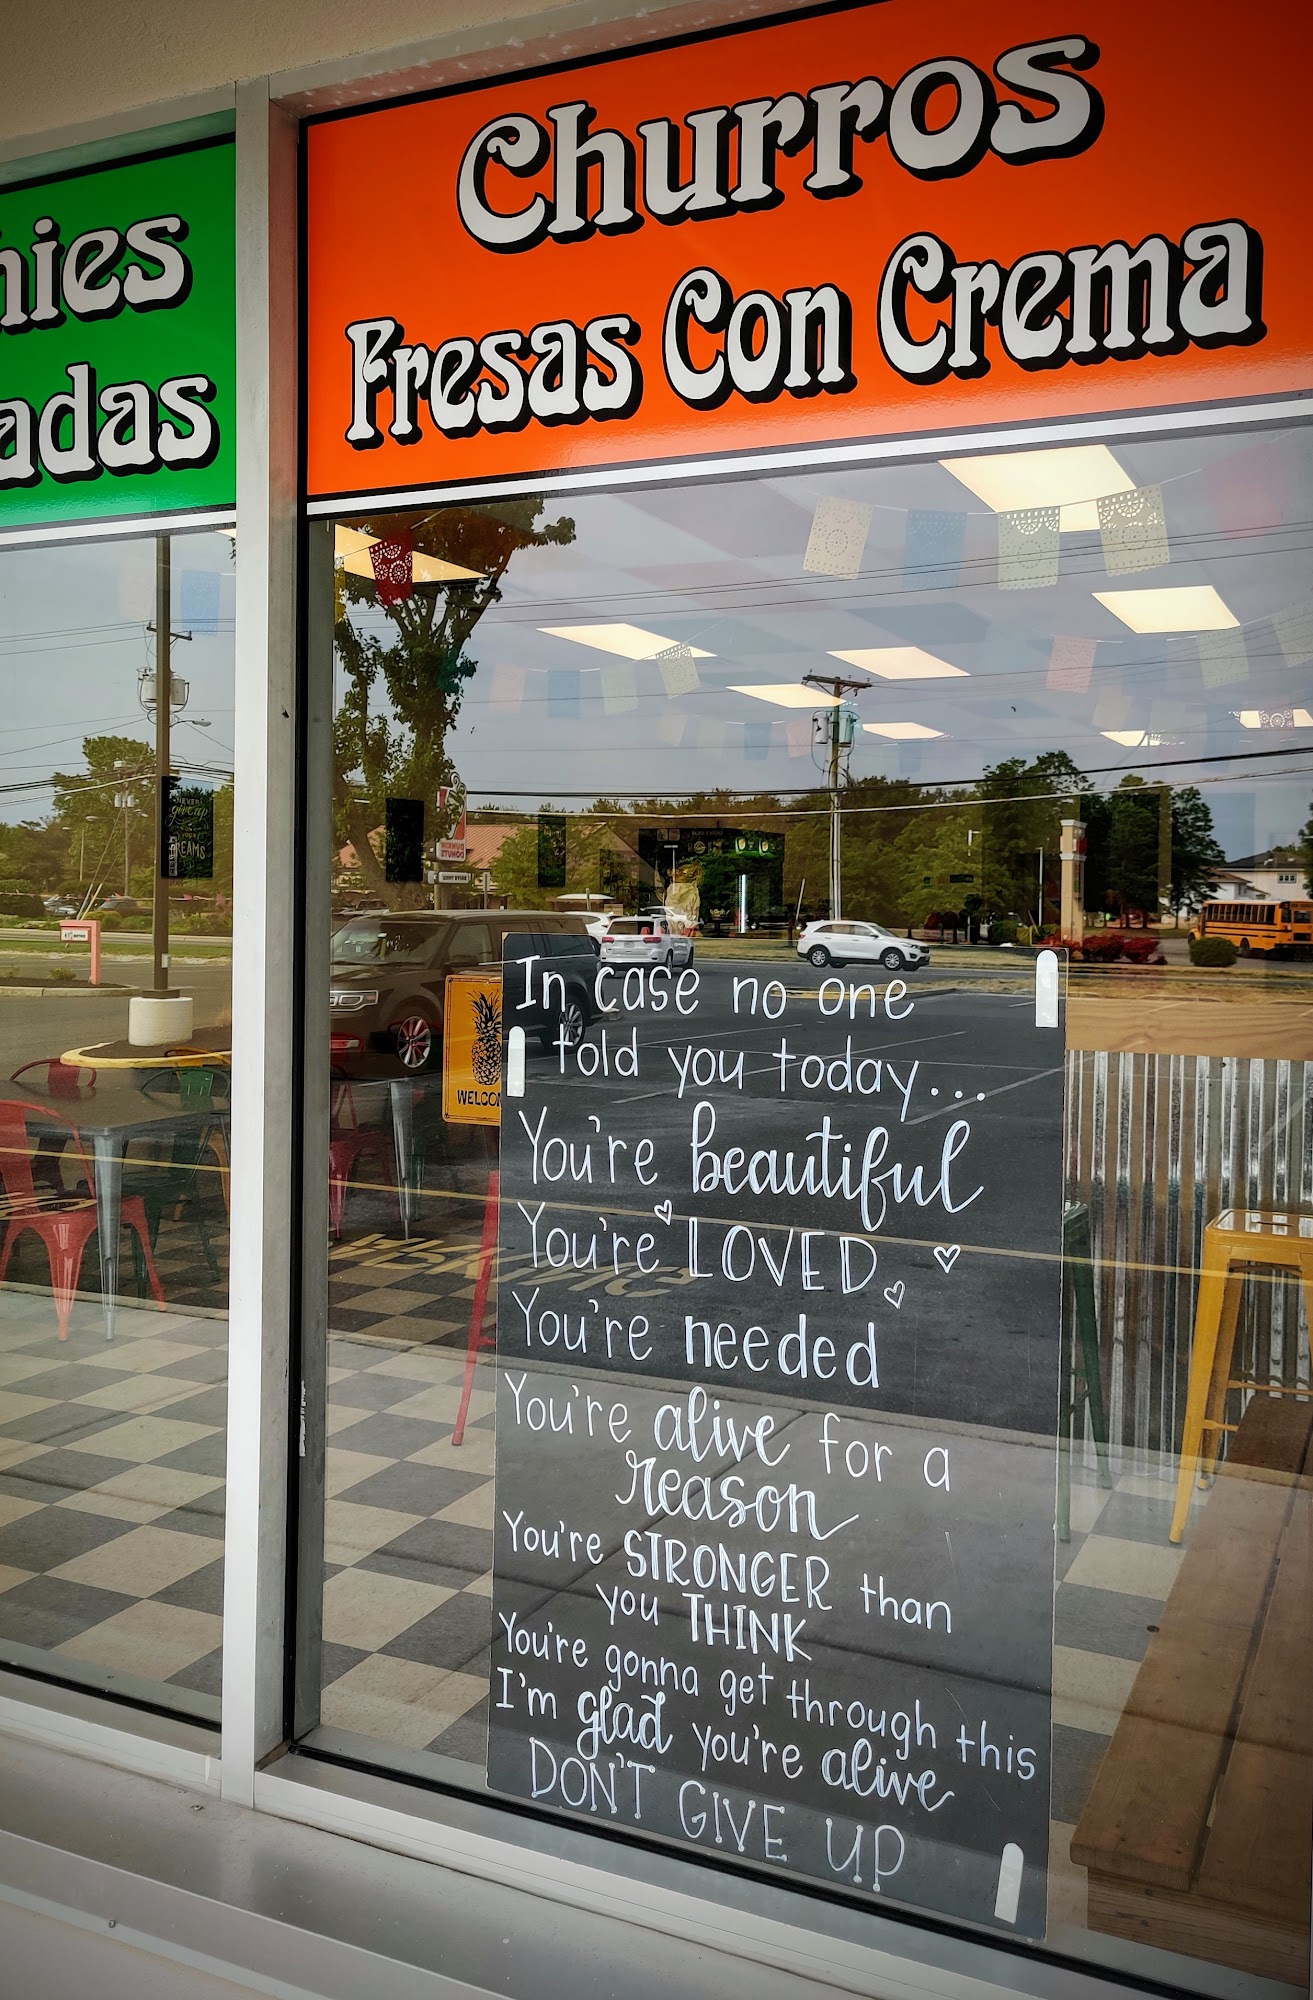 Churros
Fresas Con Crema
hies
adas
In case no one
told you today...
You're beautiful
You're LOVED
You're needed
You're alive for a
reason
You're STRONGER than
you THINK
You're gonna get through this
I'm glad you're alive
DON'T GIVE UP
NEVER
give up
DREAMS